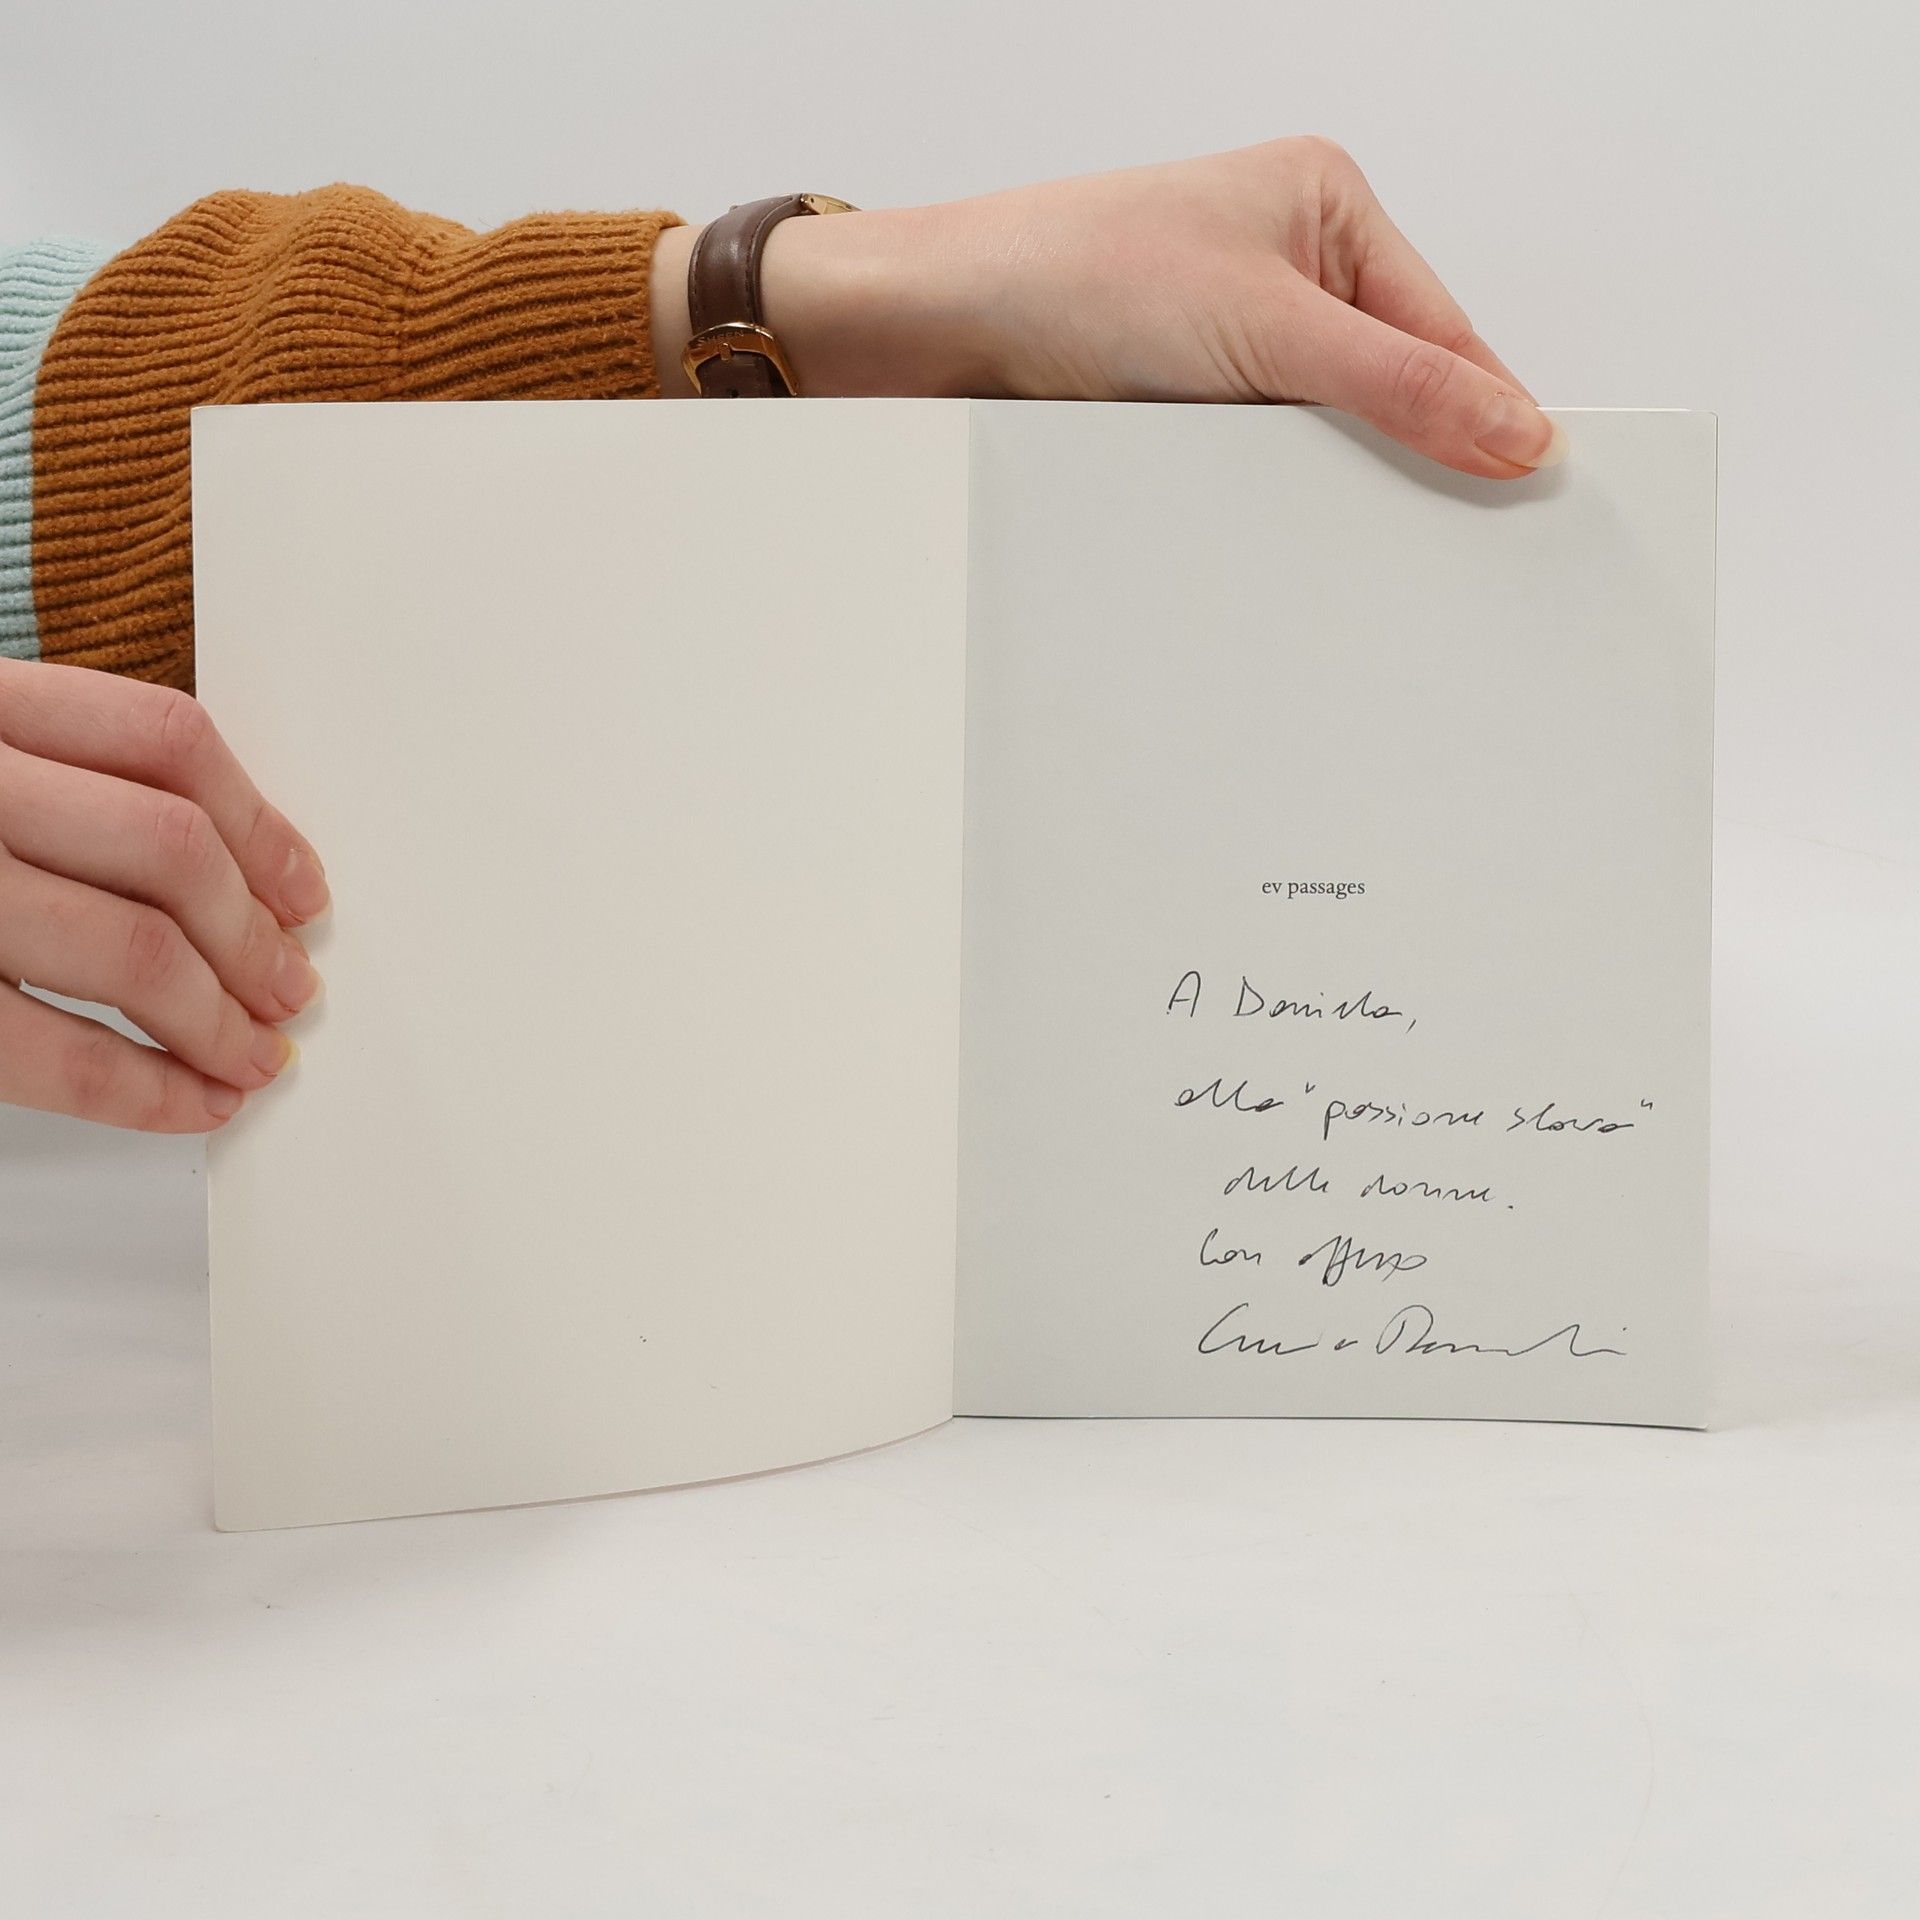 SHEEN
ev passages
A Daniela,
alla "passione slava"
delle donne.
Con affetto